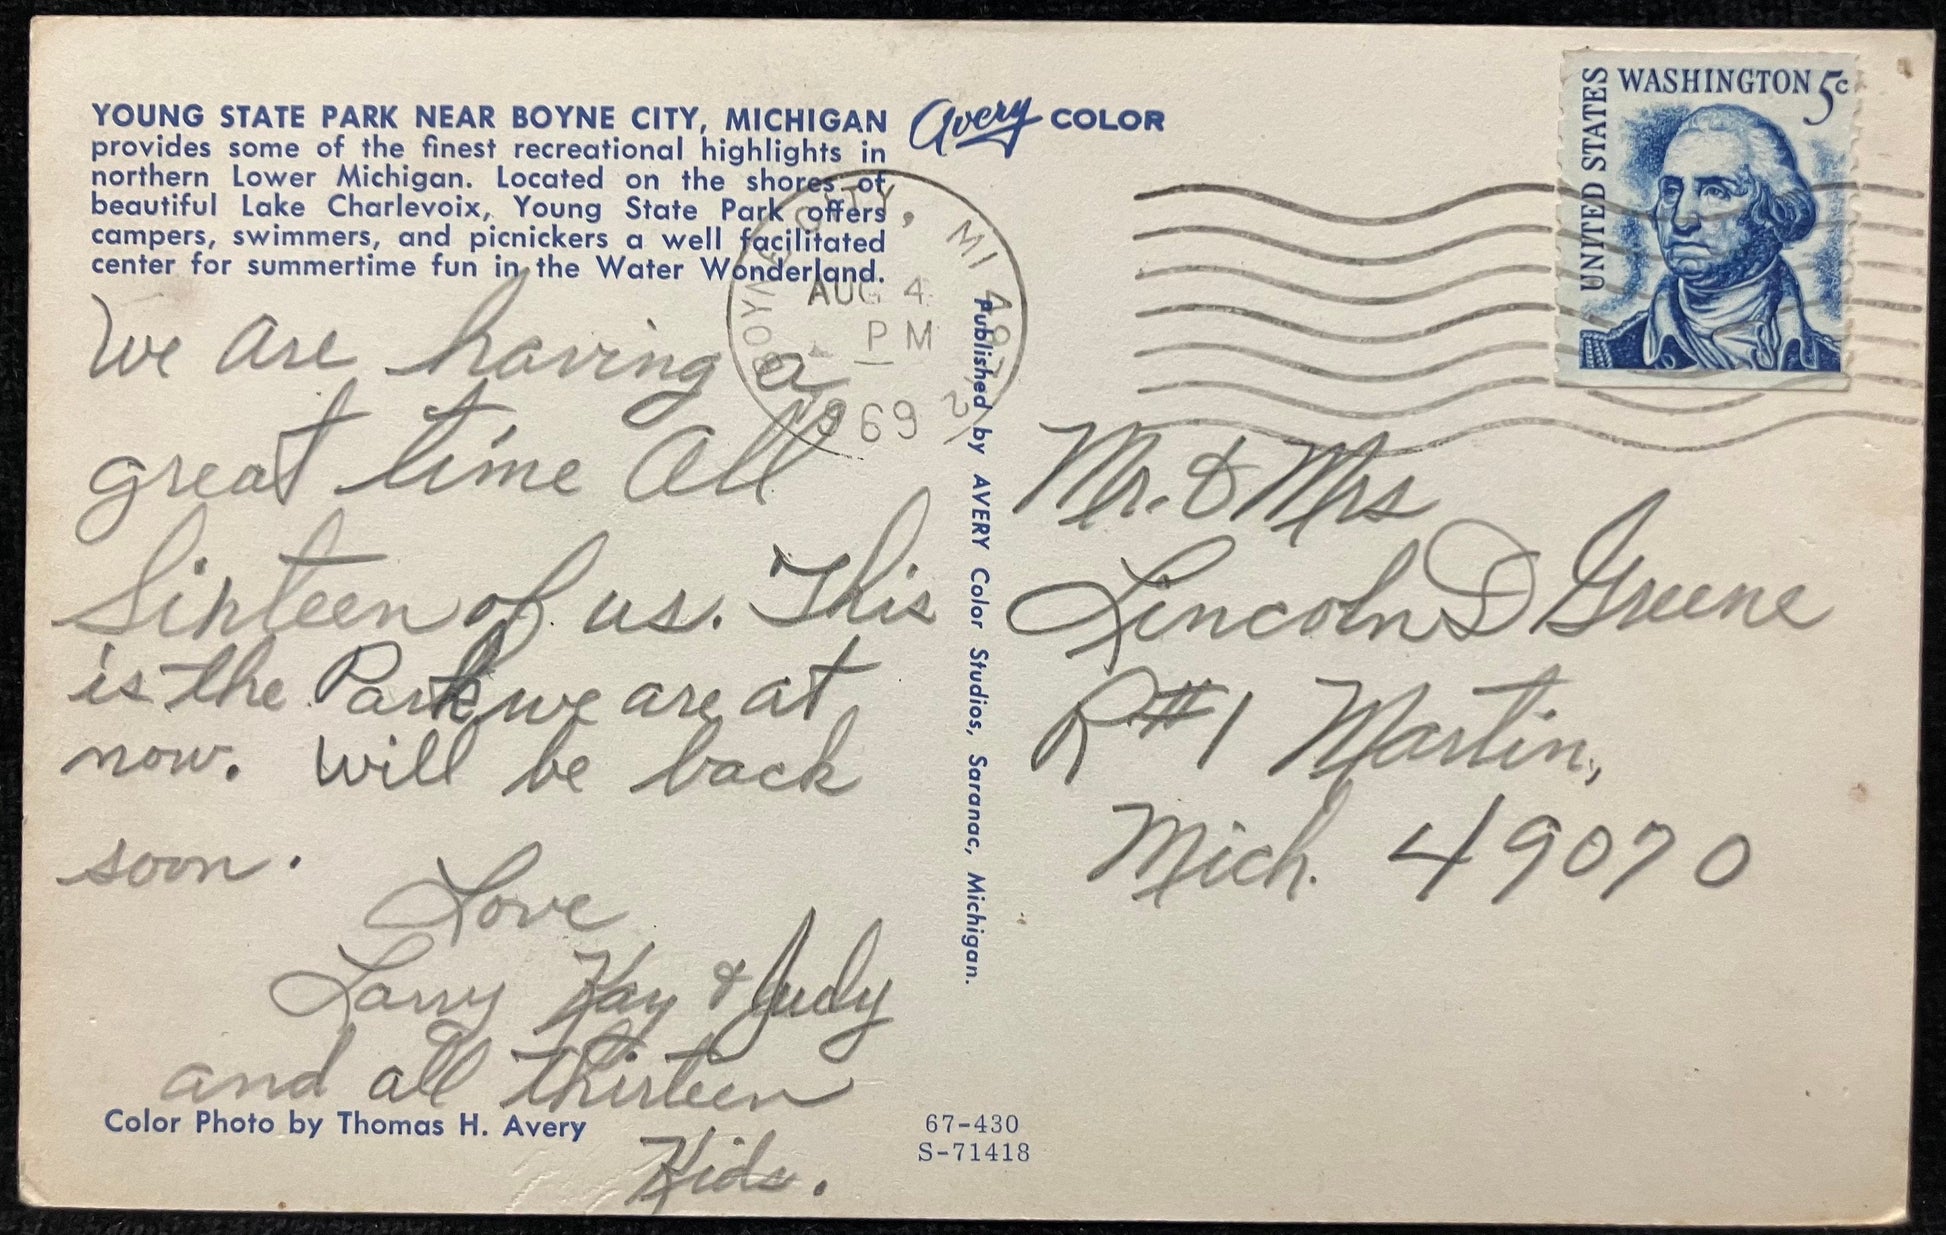 YOUNG STATE PARK NEAR BOYNE CITY, MICHIGAN
provides some of the finest recreational highlights in
northern Lower Michigan. Located on the shores of
beautiful Lake Charlevoix, Young State Park offers
campers, swimmers, and picnickers a well facilitated
center for summertime fun in the Water Wonderland.
Avery COLOR
We are having a
great time All
Sixteen of us. This
is the Park we are at
now. Will be back
soon.
Love
Larry Kay & Judy
and all thirteen
Kids.
Color Photo by Thomas H. Avery
67-430
S-71418
Published by AVERY Color Studios, Saranac, Michigan.
BOYNE CITY, MI
AUG 4
PM
1969
UNITED STATES
WASHINGTON 5c
Mr. & Mrs
Lincoln D Greene
R#1 Martin,
Mich. 49070